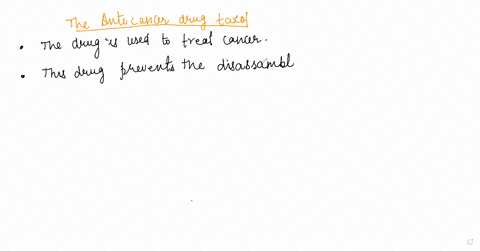 The Ante cancer drug taxol
The drug is used to treat cancer.
This drug prevents the disassambl